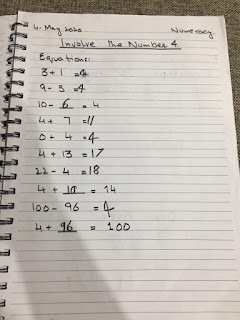 4-May 2020 Numeracy.
Involve the Number 4
Equations:
3 + 1 = 4
9 - 5 = 4
10 - 6 = 4
4 + 7 = 11
0 + 4 = 4
4 + 13 = 17
22 - 4 = 18
4 + 10 = 14
100 - 96 = 4
4 + 96 = 100